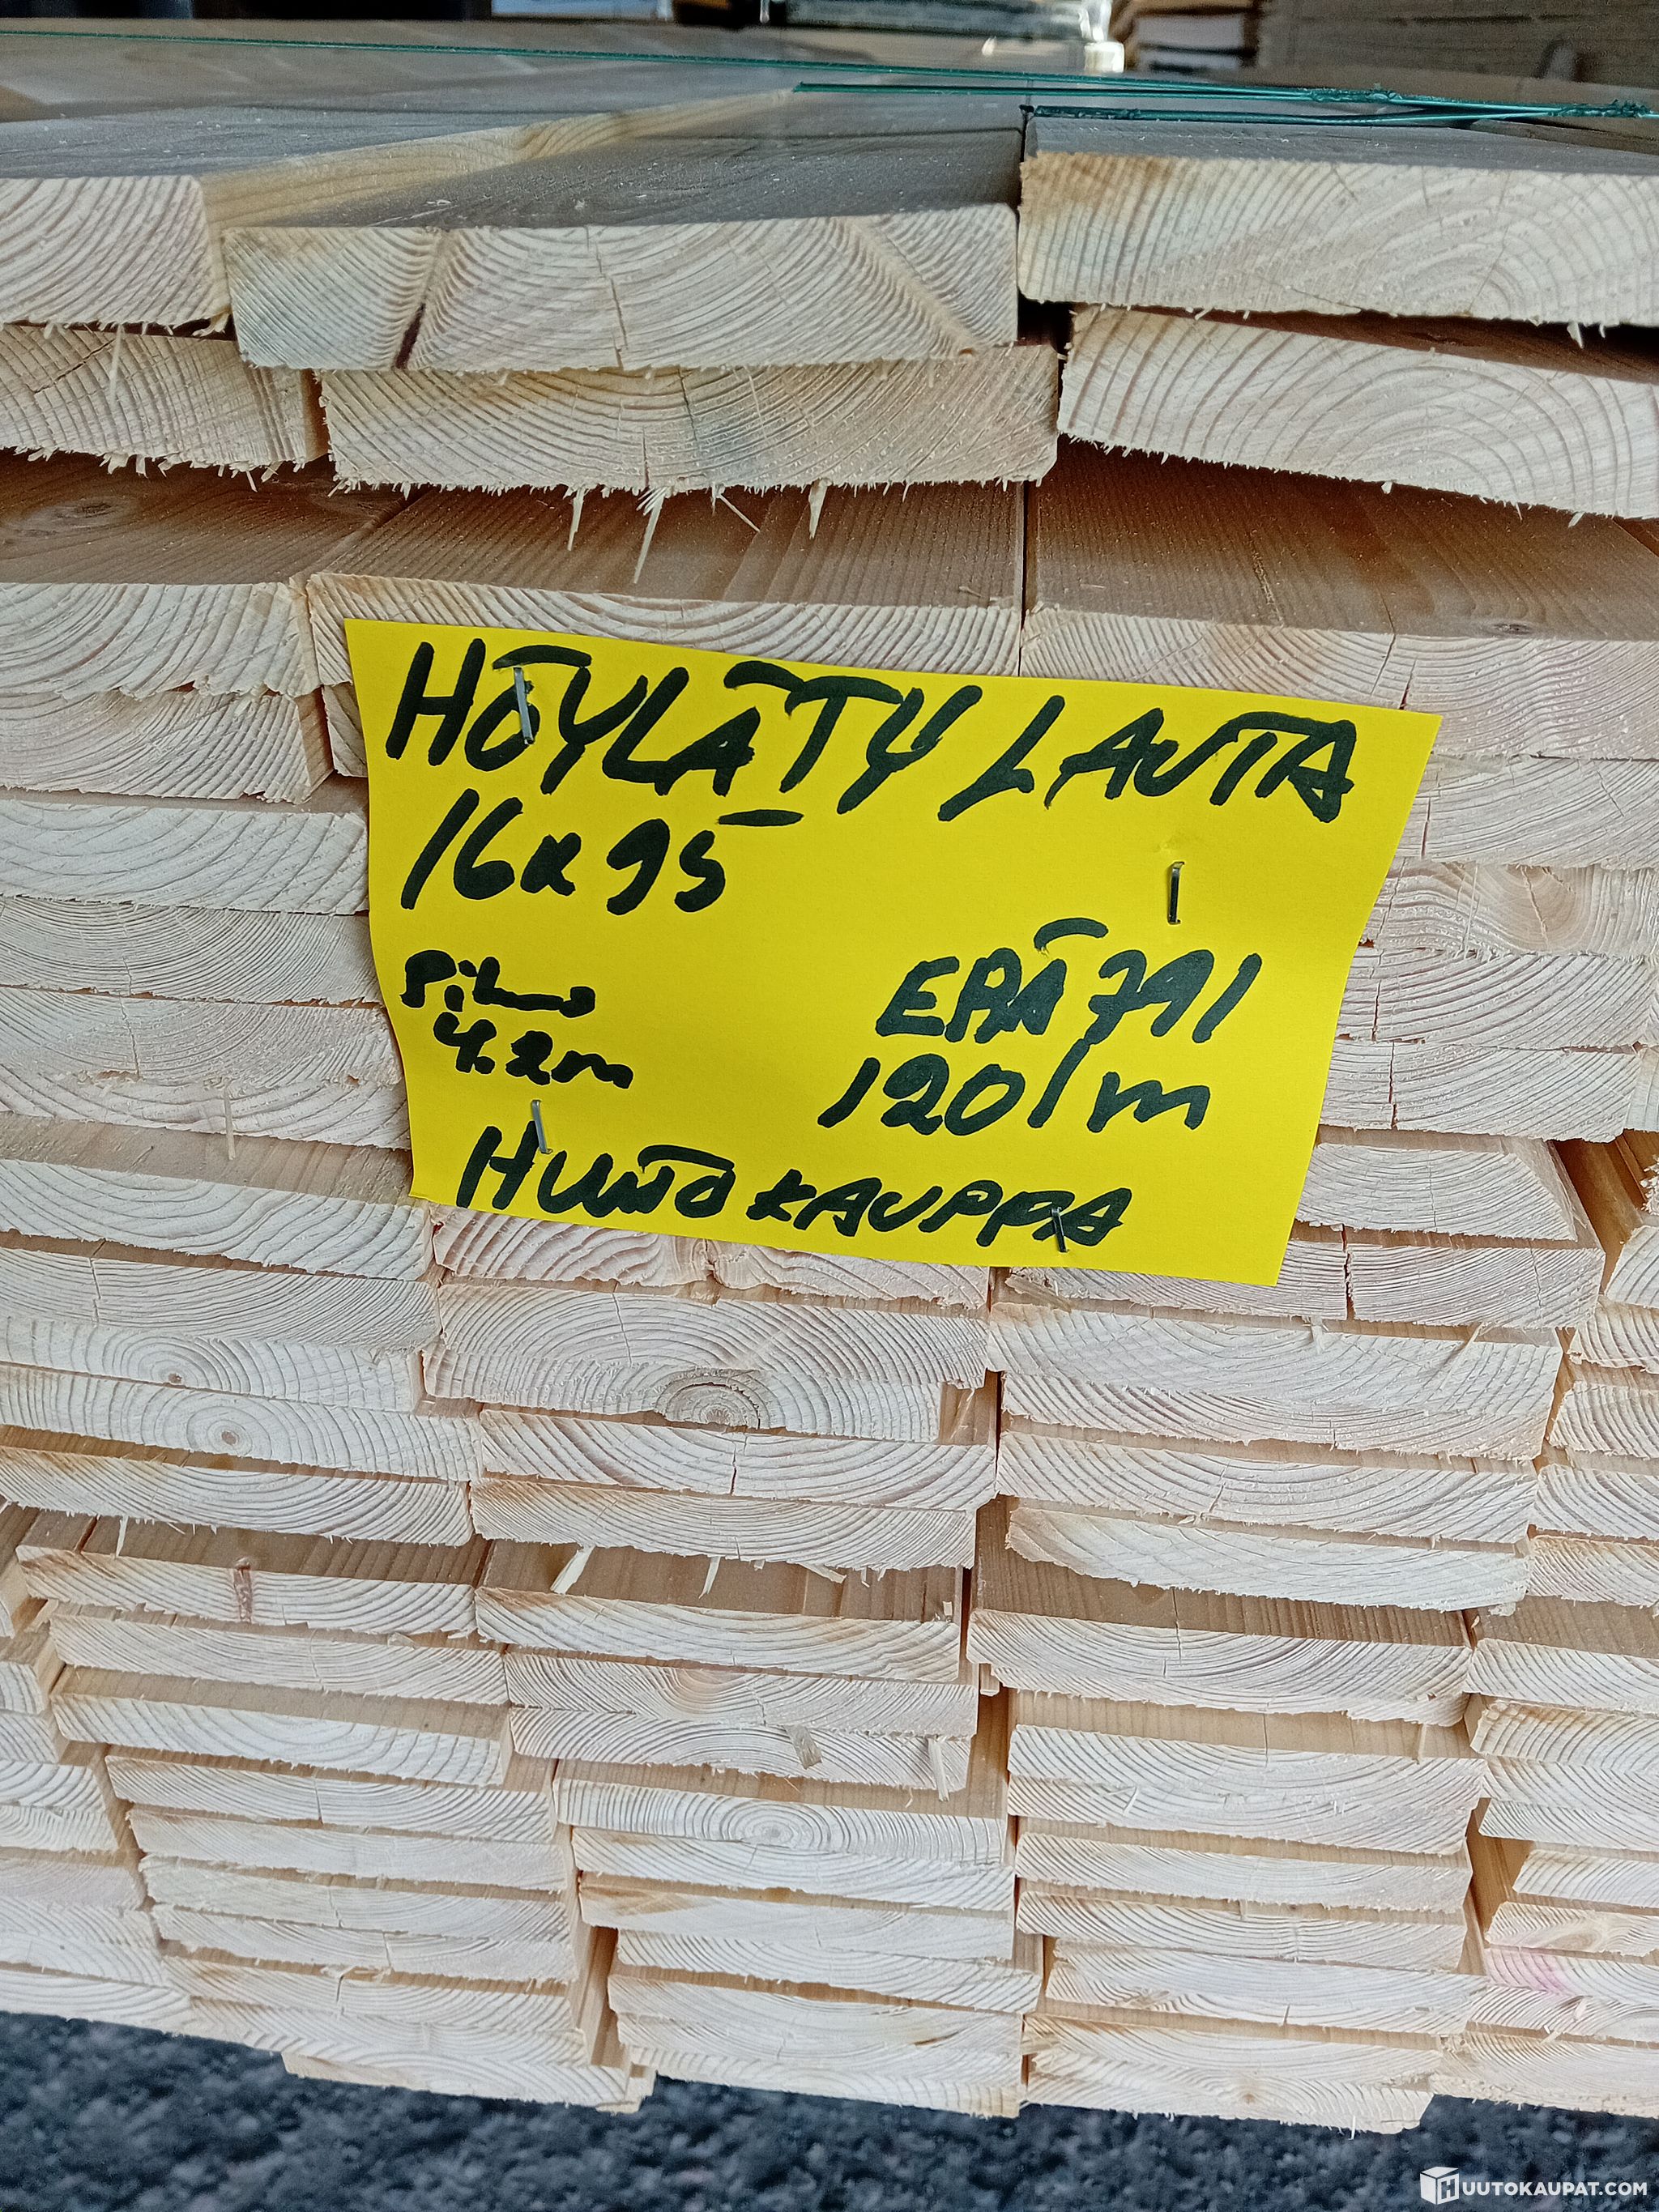 HÖYLÄTY LAUTA
16x95
Pituus
4.2m
ERÄ 791
1201m
HUUTO KAUPPA
HUUTOKAUPAT.COM